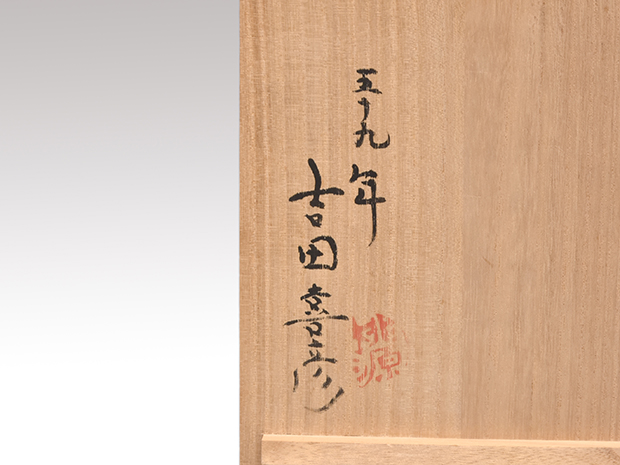 五十九年
吉田喜彦
桃源